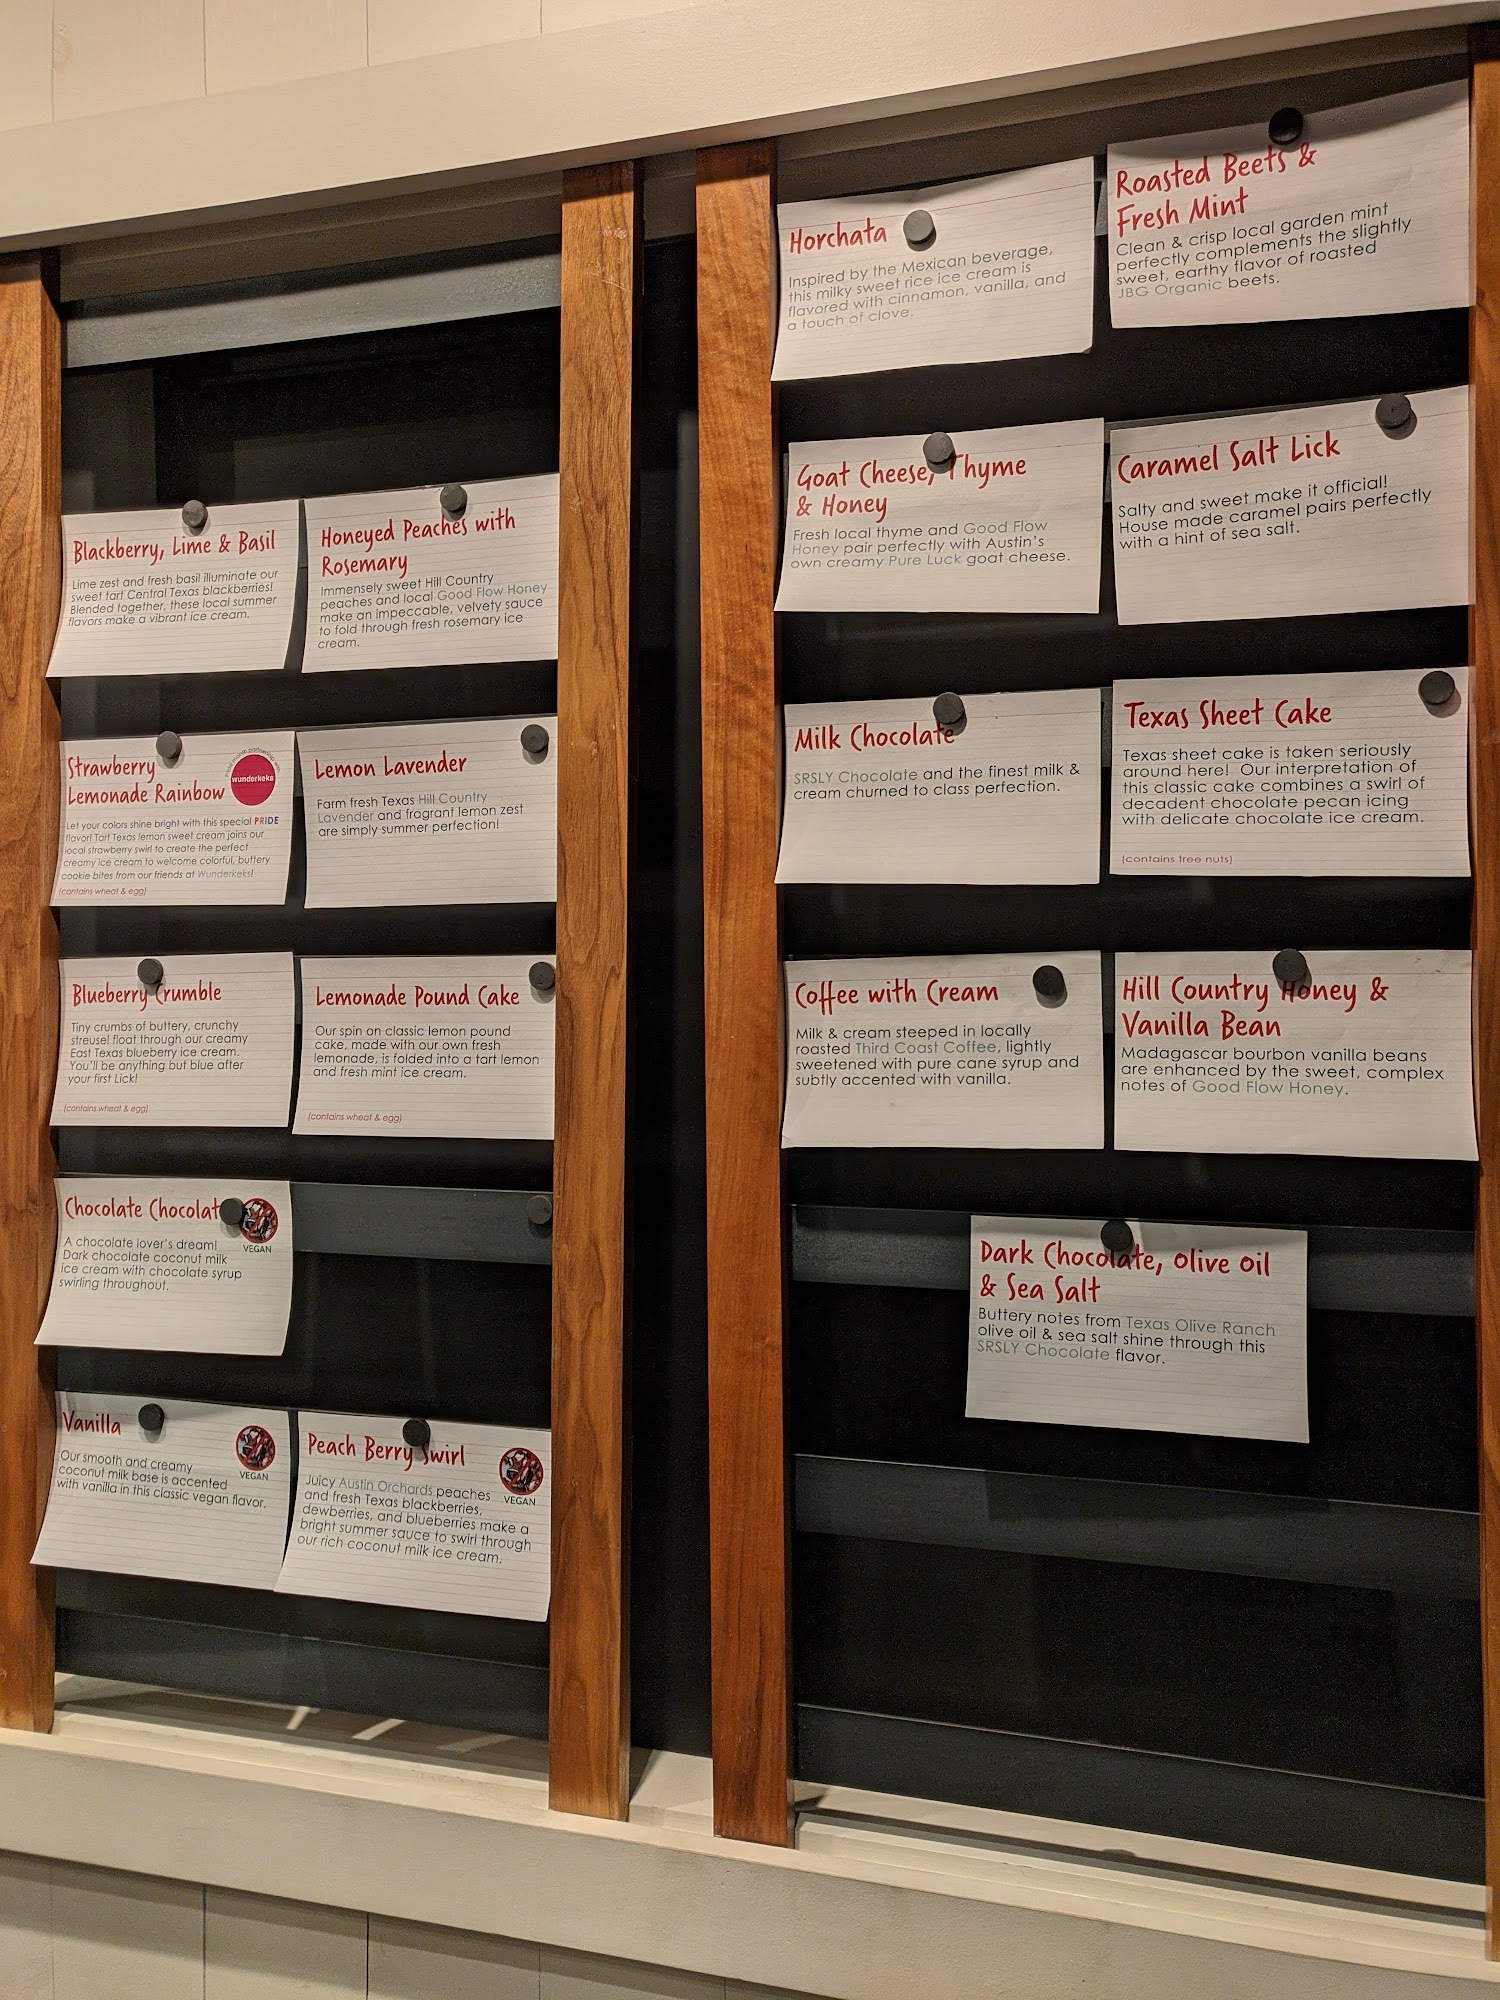 Blackberry, Lime & Basil
Lime zest and fresh basil illuminate our
sweet tart Central Texas blackberries!
Blended together, these local summer
flavors make a vibrant ice cream.
Honeyed Peaches with
Rosemary
Immensely sweet Hill Country
peaches and local Good Flow Honey
make an impeccable, velvety sauce
to fold through fresh rosemary ice
cream.
Strawberry
Lemonade Rainbow
wunderkeks
Let your colors shine bright with this special PRIDE
flavor! Tart Texas lemon sweet cream joins our
local strawberry swirl to create the perfect
creamy ice cream to welcome colorful, buttery
cookie bites from our friends at Wunderkeks!
(contains wheat & egg)
Lemon Lavender
Farm fresh Texas Hill Country
Lavender and fragrant lemon zest
are simply summer perfection!
Blueberry Crumble
Tiny crumbs of buttery, crunchy
streusel float through our creamy
East Texas blueberry ice cream.
You'll be anything but blue after
your first Lick!
(contains wheat & egg)
Lemonade Pound Cake
Our spin on classic lemon pound
cake, made with our own fresh
lemonade, is folded into a tart lemon
and fresh mint ice cream.
(contains wheat & egg)
Chocolate Chocolat
VEGAN
A chocolate lover's dream!
Dark chocolate coconut milk
ice cream with chocolate syrup
swirling throughout.
Vanilla
VEGAN
Our smooth and creamy
coconut milk base is accented
with vanilla in this classic vegan flavor.
Peach Berry Swirl
VEGAN
Juicy Austin Orchards peaches
and fresh Texas blackberries,
dewberries, and blueberries make a
bright summer sauce to swirl through
our rich coconut milk ice cream.
Horchata
Inspired by the Mexican beverage,
this milky sweet rice ice cream is
flavored with cinnamon, vanilla, and
a touch of clove.
Roasted Beets &
Fresh Mint
Clean & crisp local garden mint
perfectly complements the slightly
sweet, earthy flavor of roasted
JBG Organic beets.
Goat Cheese, Thyme
& Honey
Fresh local thyme and Good Flow
Honey pair perfectly with Austin's
own creamy Pure Luck goat cheese.
Caramel Salt Lick
Salty and sweet make it official!
House made caramel pairs perfectly
with a hint of sea salt.
Milk Chocolate
SRSLY Chocolate and the finest milk &
cream churned to class perfection.
Texas Sheet Cake
Texas sheet cake is taken seriously
around here! Our interpretation of
this classic cake combines a swirl of
decadent chocolate pecan icing
with delicate chocolate ice cream.
(contains tree nuts)
Coffee with Cream
Milk & cream steeped in locally
roasted Third Coast Coffee, lightly
sweetened with pure cane syrup and
subtly accented with vanilla.
Hill Country Honey &
Vanilla Bean
Madagascar bourbon vanilla beans
are enhanced by the sweet, complex
notes of Good Flow Honey.
Dark Chocolate, Olive Oil
& Sea Salt
Buttery notes from Texas Olive Ranch
olive oil & sea salt shine through this
SRSLY Chocolate flavor.